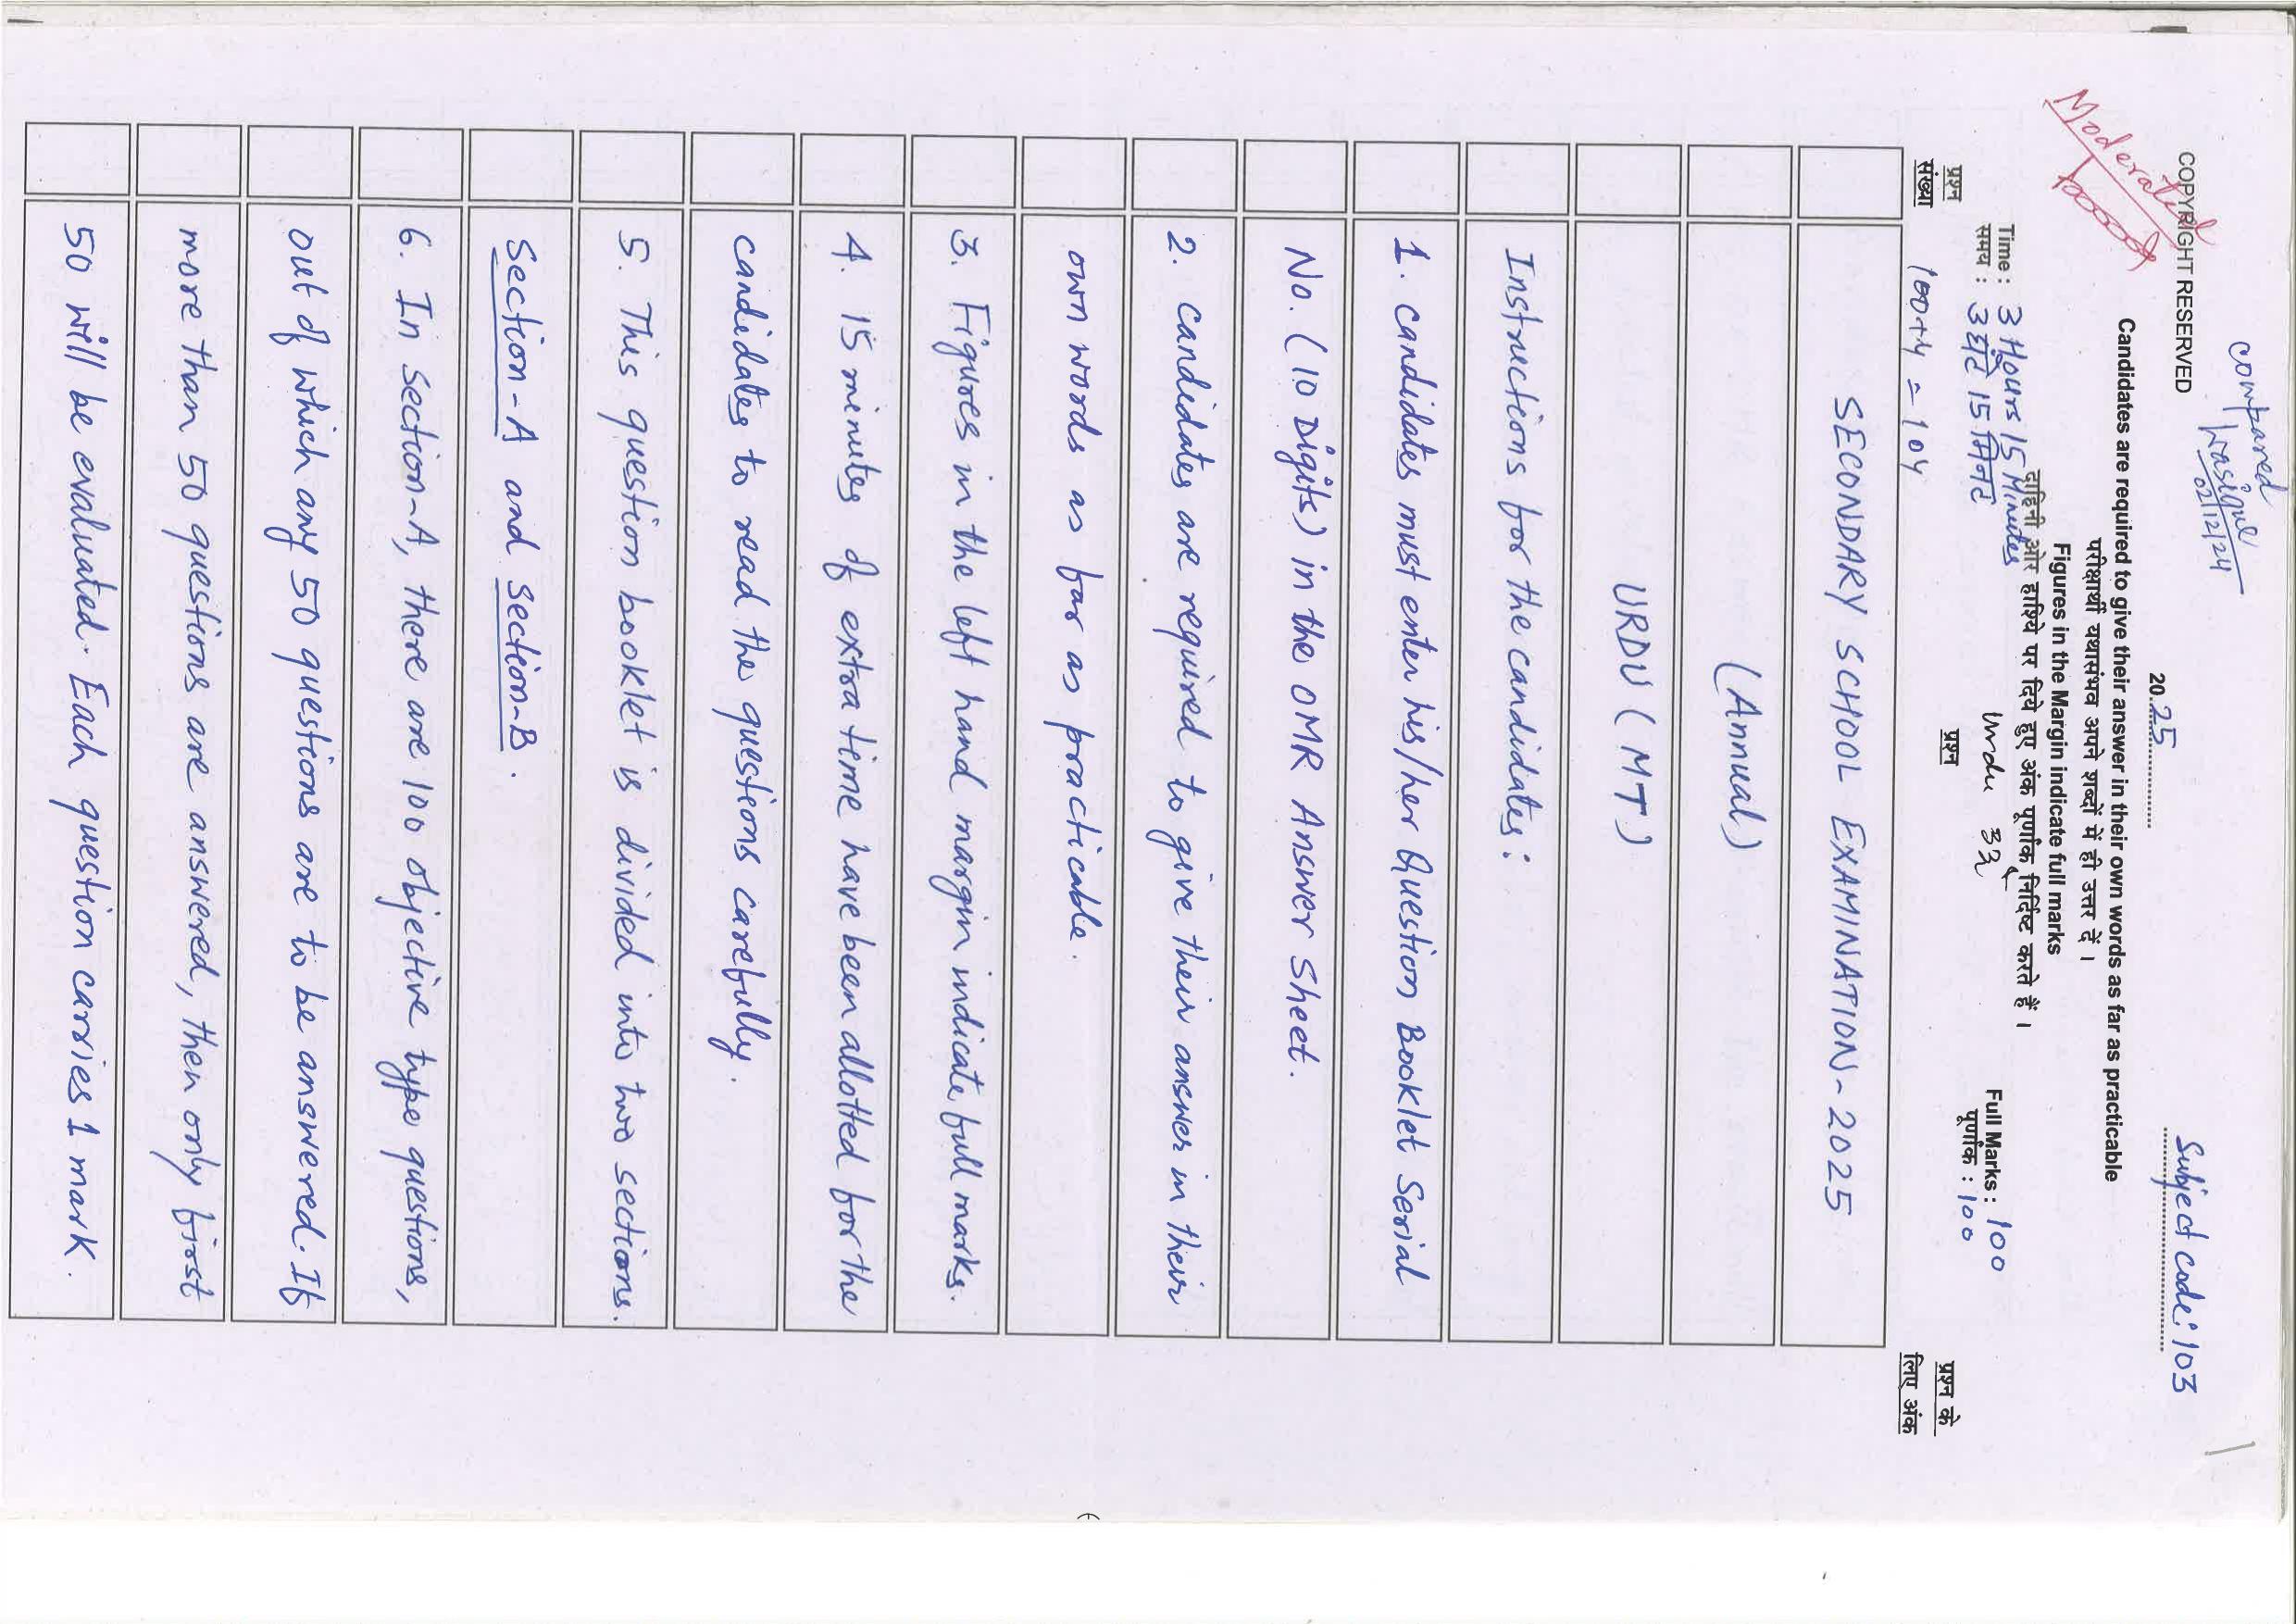 compared
Wasique
02/12/24
COPYRIGHT RESERVED
2025
Subject code: 103
Moderated
Candidates are required to give their answer in their own words as far as practicable
परीक्षार्थी यथासंभव अपने शब्दों में ही उत्तर दें ।
Figures in the Margin indicate full marks
दाहिनी ओर हाशिये पर दिये हुए अंक पूर्णांक निर्दिष्ट करते हैं ।
Time : 3 Hours 15 Minutes
Urdu उर्दू
Full Marks : 100
समय : 3 घंटे 15 मिनट
पूर्णांक : 100
प्रश्न संख्या
100+4 = 104
प्रश्न
प्रश्न के लिए अंक
SECONDARY SCHOOL EXAMINATION-2025
(Annual)
URDU (MT)
Instructions for the candidates:
1. candidates must enter his/her Question Booklet Serial
No. (10 Digits) in the OMR Answer Sheet.
2. candidates are required to give their answer in their
own words as far as practicable.
3. Figures in the left hand margin indicate full marks.
4. 15 minutes of extra time have been allotted for the
candidates to read the questions carefully.
5. This question booklet is divided into two sections.
Section-A and Section-B.
6. In section-A, there are 100 objective type questions,
out of which any 50 questions are to be answered. If
more than 50 questions are answered, then only first
50 will be evaluated. Each question carries 1 mark.